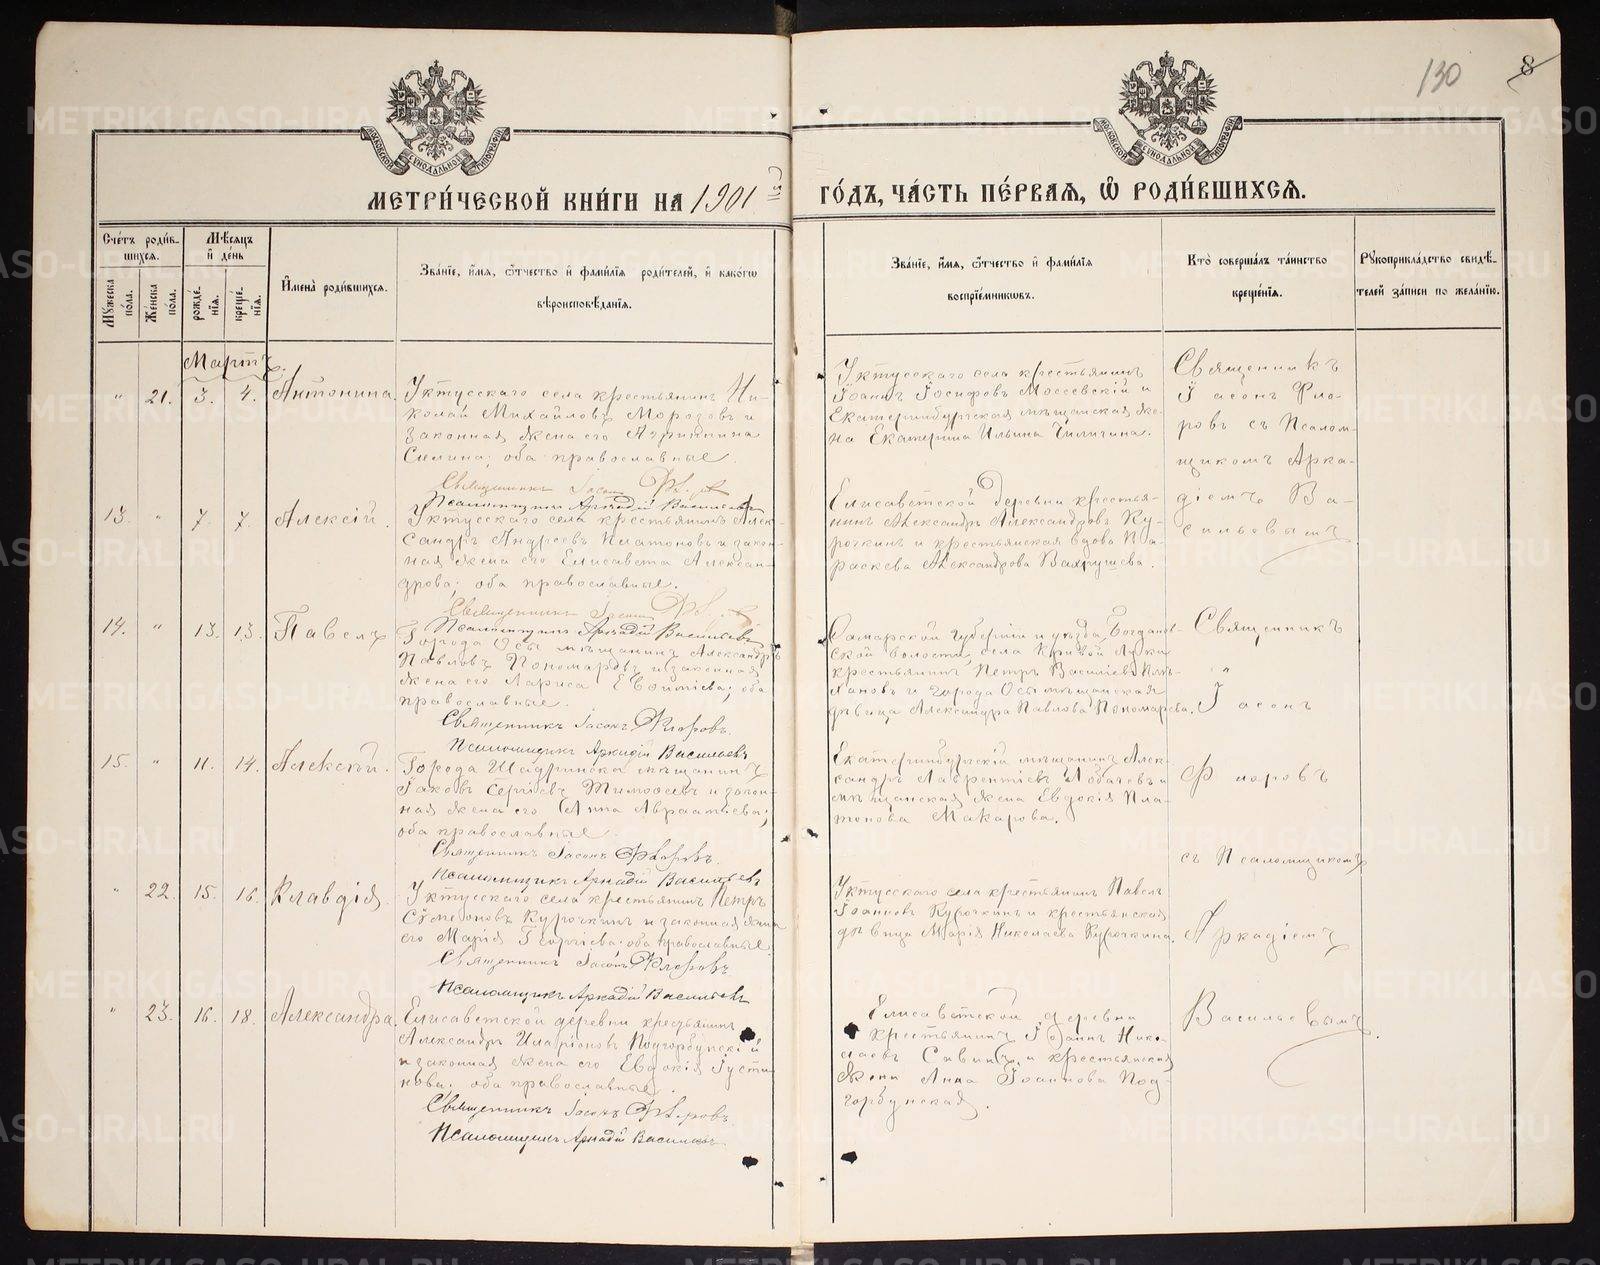 130
8
МОСКОВСКОЙ СѴНОДАЛЬНОЙ ТИПОГРАФІИ
МОСКОВСКОЙ СѴНОДАЛЬНОЙ ТИПОГРАФІИ
МЕТРИ́ЧЕСКОЙ КНИ́ГИ НА 1901 й
ГО́ДЪ, ЧА́СТЬ ПЕ́РВАЯ, Ѡ РОДИ́ВШИХСЯ.
Сче́тъ роди́в-
шихся.
Мѣсяцъ
и де́нь
Мꙋ́жеска по́ла.
Же́нска по́ла.
рожде́-
нія.
креще́-
нія.
Имена̀ роди́вшихся.
Зва́ніе, и́мя, ѻ́тчество и фами́лія роди́телей, и како́гѡ
вѣроисповѣ́данія.
Зва́ніе, и́мя, ѻ́тчество и фами́лія
воспріе́мникѡвъ.
Кто̀ соверша́лъ та́инство
креще́нія.
Рꙋкоприкла́дство свидѣ́-
телей за́писи по жела́нію.
Мартъ.
" 21. 3. 4. Антонина.
Уктусскаго села крестьянинъ Ни-
колай Михайловъ Морозовъ и
законная жена его Агриппина
Силина; оба православные.
Священникъ Іасонъ
Псаломщикъ Аркадій Васильевъ
Уктусскаго села крестьянинъ
Іоаннъ Іосифовъ Моссевскій и
Екатеринбургская мѣщанская же-
на Екатерина Ильина Чиличина.
Священникъ
Іасонъ Фло-
ровъ съ Псалом-
щикомъ Арка-
діемъ Ва-
сильевымъ
13. " 7. 7. Алексій.
Уктусскаго села крестьянинъ Алек-
сандръ Андреевъ Платоновъ и закон-
ная жена его Елисавета Алексан-
дрова; оба православные.
Священникъ Іасонъ
Псаломщикъ Аркадій Васильевъ
Елисаветской деревни крестья-
нинъ Александръ Александровъ Ку-
рочкинъ и крестьянская вдова Па-
раскева Александрова Вахрушева.
14. " 13. 13. Павелъ
Города Осы мѣщанинъ Александръ
Павловъ Пономаревъ и законная
жена его Лариса Евѳиміева; оба
православные.
Священникъ Іасонъ Флоровъ.
Псаломщикъ Аркадій Васильевъ
Самарской губерніи и уѣзда, Богданов-
ской волости, села Кривой Луки
крестьянинъ Петръ Василіевъ
и города Осы мѣщанская
дѣвица Александра Павлова Пономарева.
Священникъ
"
Іасонъ
15. " 11. 14. Алексій.
Города Шадринска мѣщанинъ
Іаковъ Сергіевъ Тимоѳеевъ и закон-
ная жена его Анна Авраамьева;
оба православные.
Священникъ Іасонъ Флоровъ.
Псаломщикъ Аркадій Васильевъ
Екатеринбургскій мѣщанинъ Алек-
сандръ Лаврентіевъ Лобачевъ и
мѣщанская жена Евдокія Пла-
тонова Макарова.
Флоровъ
съ Псаломщикомъ
" 22. 15. 16. Клавдія.
Уктусскаго села крестьянинъ Петръ
Сѵмеоновъ Курочкинъ и законная жена
его Марія Георгіева; оба православные.
Священникъ Іасонъ Флоровъ
Псаломщикъ Аркадій Васильевъ
Уктусскаго села крестьянинъ Павелъ
Іоанновъ Курочкинъ и крестьянская
дѣвица Марія Николаева Курочкина.
Аркадіемъ
" 23. 16. 18. Александра.
Елисаветской деревни крестьянинъ
Александръ Иларіоновъ Подгорбунскій
и законная жена его Евдокія Іусти-
нова; оба православные.
Священникъ Іасонъ Флоровъ
Псаломщикъ Аркадій Васильевъ
Елисаветской деревни
крестьянинъ Іоаннъ Нико-
лаевъ Савинъ, и крестьянская
жена Анна Іоаннова Под-
горбунская.
Васильевымъ.